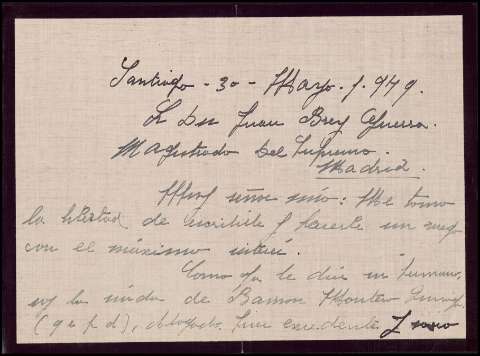 Santiago - 30 - Mayo - 1.949.
Sr Dn Juan Brey Guerra.
Magistrado del Supremo.
Madrid.
Muy señor mío: Me tomo
la libertad de escribirle y hacerle un ruego
con el máximo interés.
Como ya le dirá su hermano,
soy la viuda de Ramón Montero
(q e p d), abogado,